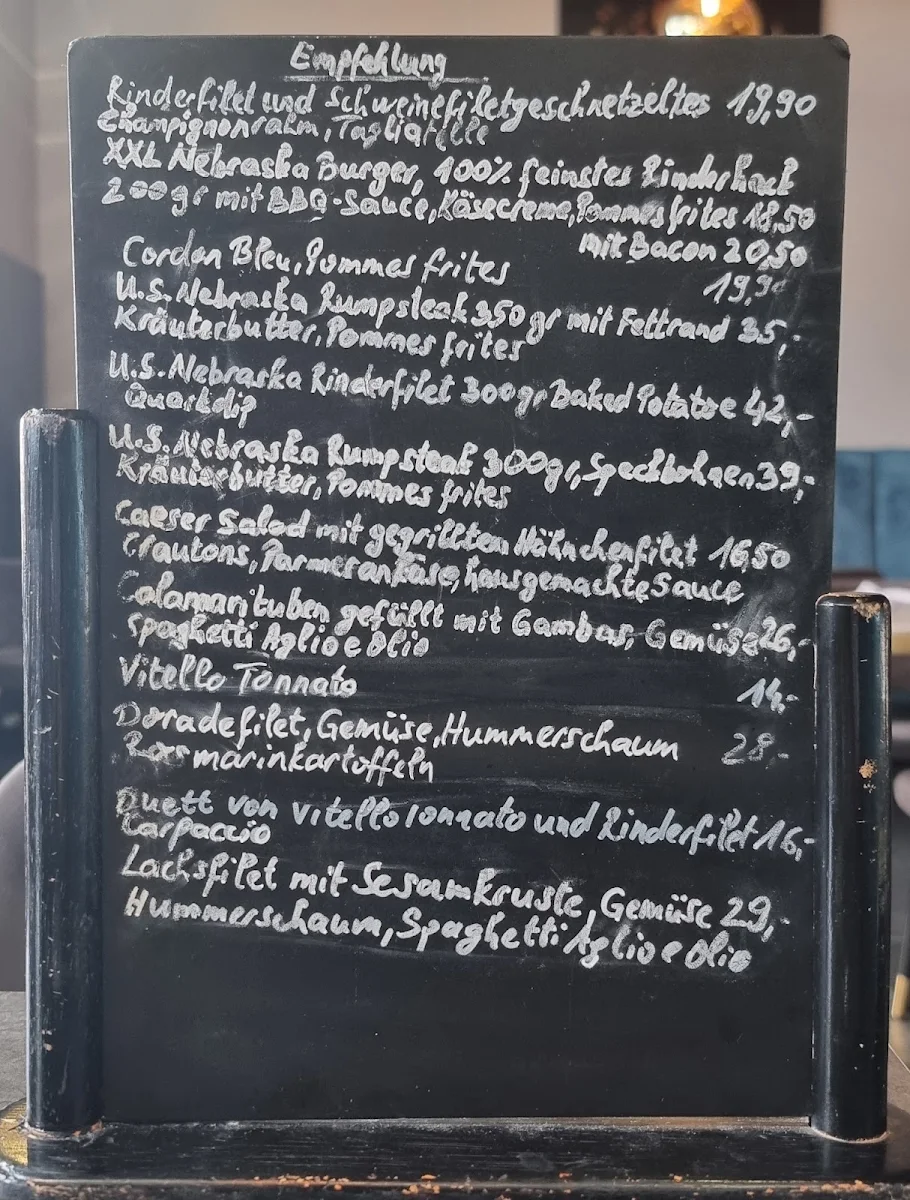 Empfehlung
Rinderfilet und Schweinefiletgeschnetzeltes 19,90
Champignonrahm, Tagliatelle
XXL Nebraska Burger, 100% feinstes Rinderhack
200gr mit BBQ-Sauce, Käsecreme, Pommes frites 18,50
mit Bacon 20,50
Cordon Bleu, Pommes frites 19,90
U.S. Nebraska Rumpsteak 350 gr mit Fettrand 35,-
Kräuterbutter, Pommes frites
U.S. Nebraska Rinderfilet 300gr Baked Potatoe 42,-
Quarkdip
U.S. Nebraska Rumpsteak 300gr, Speckbohnen 39,-
Kräuterbutter, Pommes frites
Caeser Salad mit gegrillten Hähnchenfilet 16,50
Crautons, Parmesankäse, hausgemachte Sauce
Calamarituben gefüllt mit Gambas, Gemüse 26,-
Spaghetti Aglio e Olio
Vitello Tonnato 14,-
Doradefilet, Gemüse, Hummerschaum 28,-
Rosmarinkartoffeln
Duett von Vitello Tonnato und Rinderfilet 16,-
Carpaccio
Lachsfilet mit Sesamkruste, Gemüse 29,-
Hummerschaum, Spaghetti Aglio e Olio